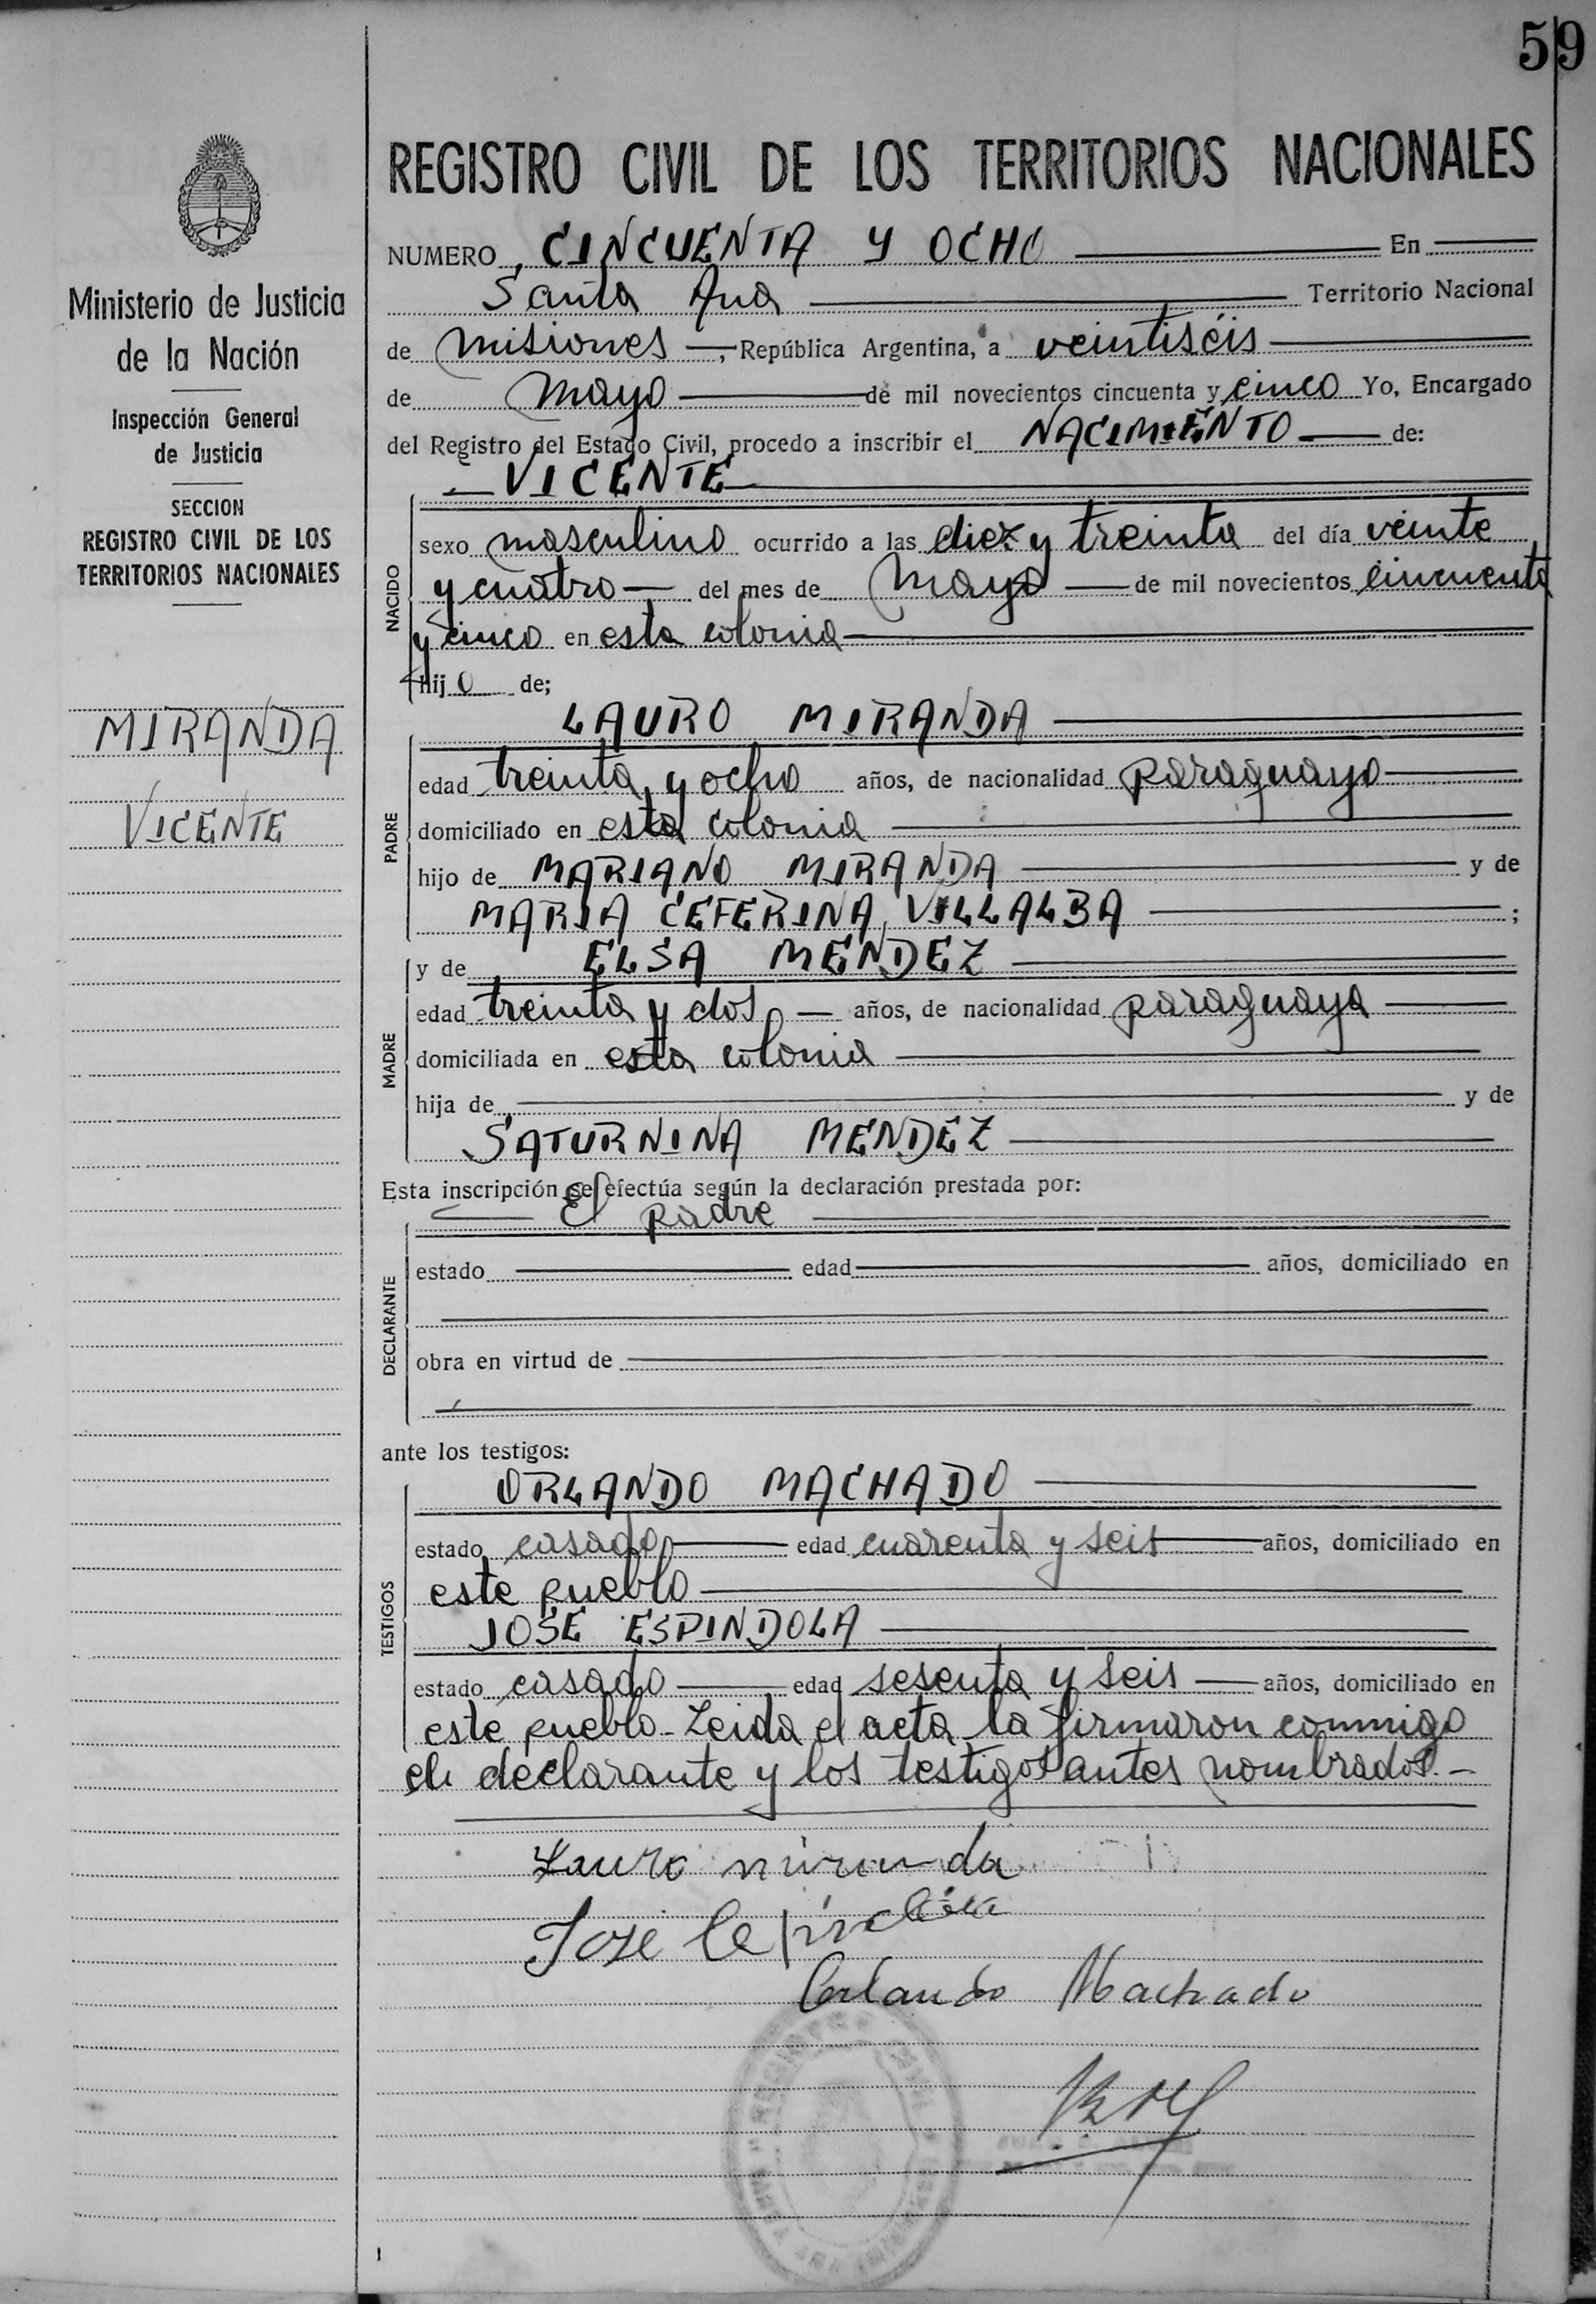 59
Ministerio de Justicia
de la Nación
Inspección General
de Justicia
SECCION
REGISTRO CIVIL DE LOS
TERRITORIOS NACIONALES
MIRANDA
VICENTE
REGISTRO CIVIL DE LOS TERRITORIOS NACIONALES
NUMERO CINCUENTA Y OCHO En
Santa Ana Territorio Nacional
de Misiones, República Argentina, a veintiséis
de Mayo de mil novecientos cincuenta y cinco Yo, Encargado
del Registro del Estado Civil, procedo a inscribir el NACIMIENTO de:
VICENTE
NACIDO
sexo masculino ocurrido a las diez y treinta del día veinte
y cuatro del mes de Mayo de mil novecientos cincuenta
y cinco en esta colonia
hijo de;
PADRE
LAURO MIRANDA
edad treinta y ocho años, de nacionalidad paraguayo
domiciliado en esta colonia
hijo de MARIANO MIRANDA y de
MARIA CEFERINA VILLALBA ;
MADRE
y de ELSA MENDEZ
edad treinta y dos años, de nacionalidad paraguaya
domiciliada en esta colonia
hija de y de
SATURNINA MENDEZ
Esta inscripción se efectúa según la declaración prestada por:
El padre
DECLARANTE
estado edad años, domiciliado en
obra en virtud de
ante los testigos:
TESTIGOS
ORLANDO MACHADO
estado casado edad cuarenta y seis años, domiciliado en
este pueblo
JOSE ESPINDOLA
estado casado edad sesenta y seis años, domiciliado en
este pueblo - Leida el acta la firmaron conmigo
el declarante y los testigos antes nombrados. -
Lauro miranda
Jose
Orlando Machado